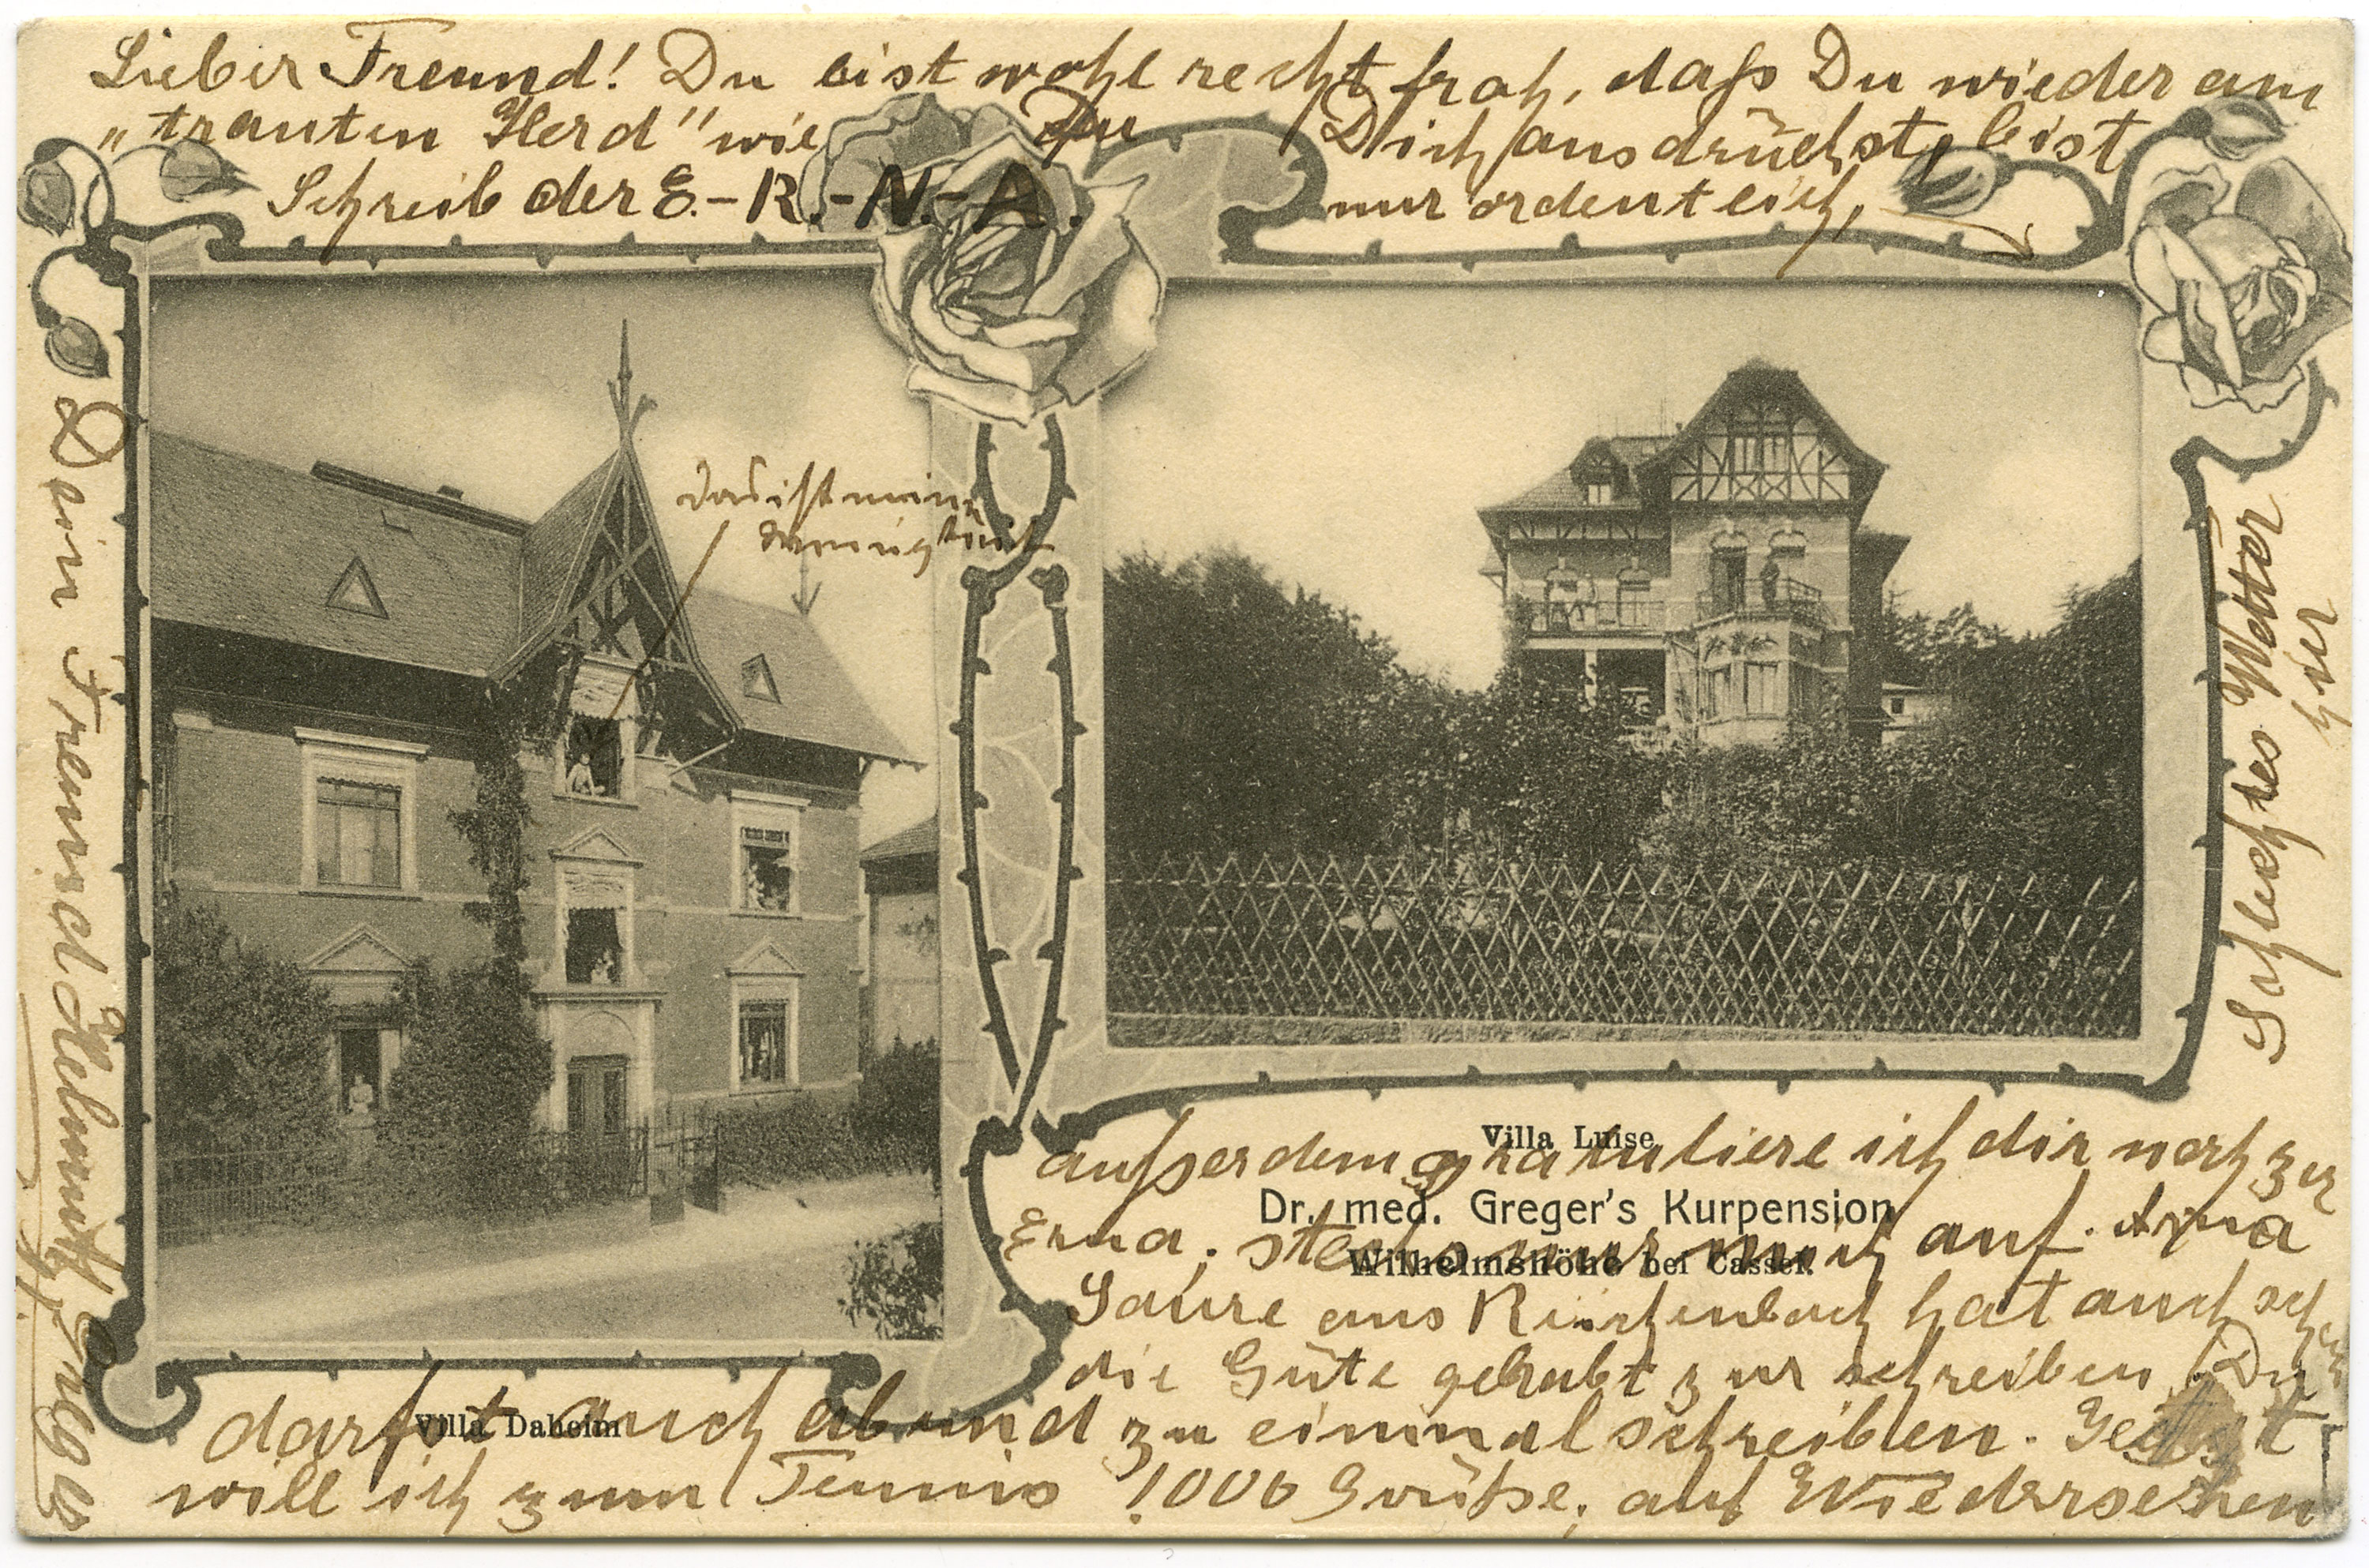 Lieber Freund! Du bist wohl recht froh, daß Du wieder am
„trauten Herd" wie Du Dich ausdrückst, bist
Schreib der E.-R.-N.-A. nur ordentlich,
das ist meine
Villa Luise
außerdem gratuliere ich dir noch zur
Dr. med. Greger's Kurpension
Erna, steck nur mich auf. Anna
Wilhelmshöhe bei Cassel.
aus Reichenbach hat auch schon
die Güte gehabt zur schreiben. Du
Villa Daheim
darfst auch ab und zu einmal schreiben. Jetzt
will ich zum Tennis 1000 Grüße, auf Wiedersehen
Dein Freund Helmuth Greger
Schlechtes Wetter
hier